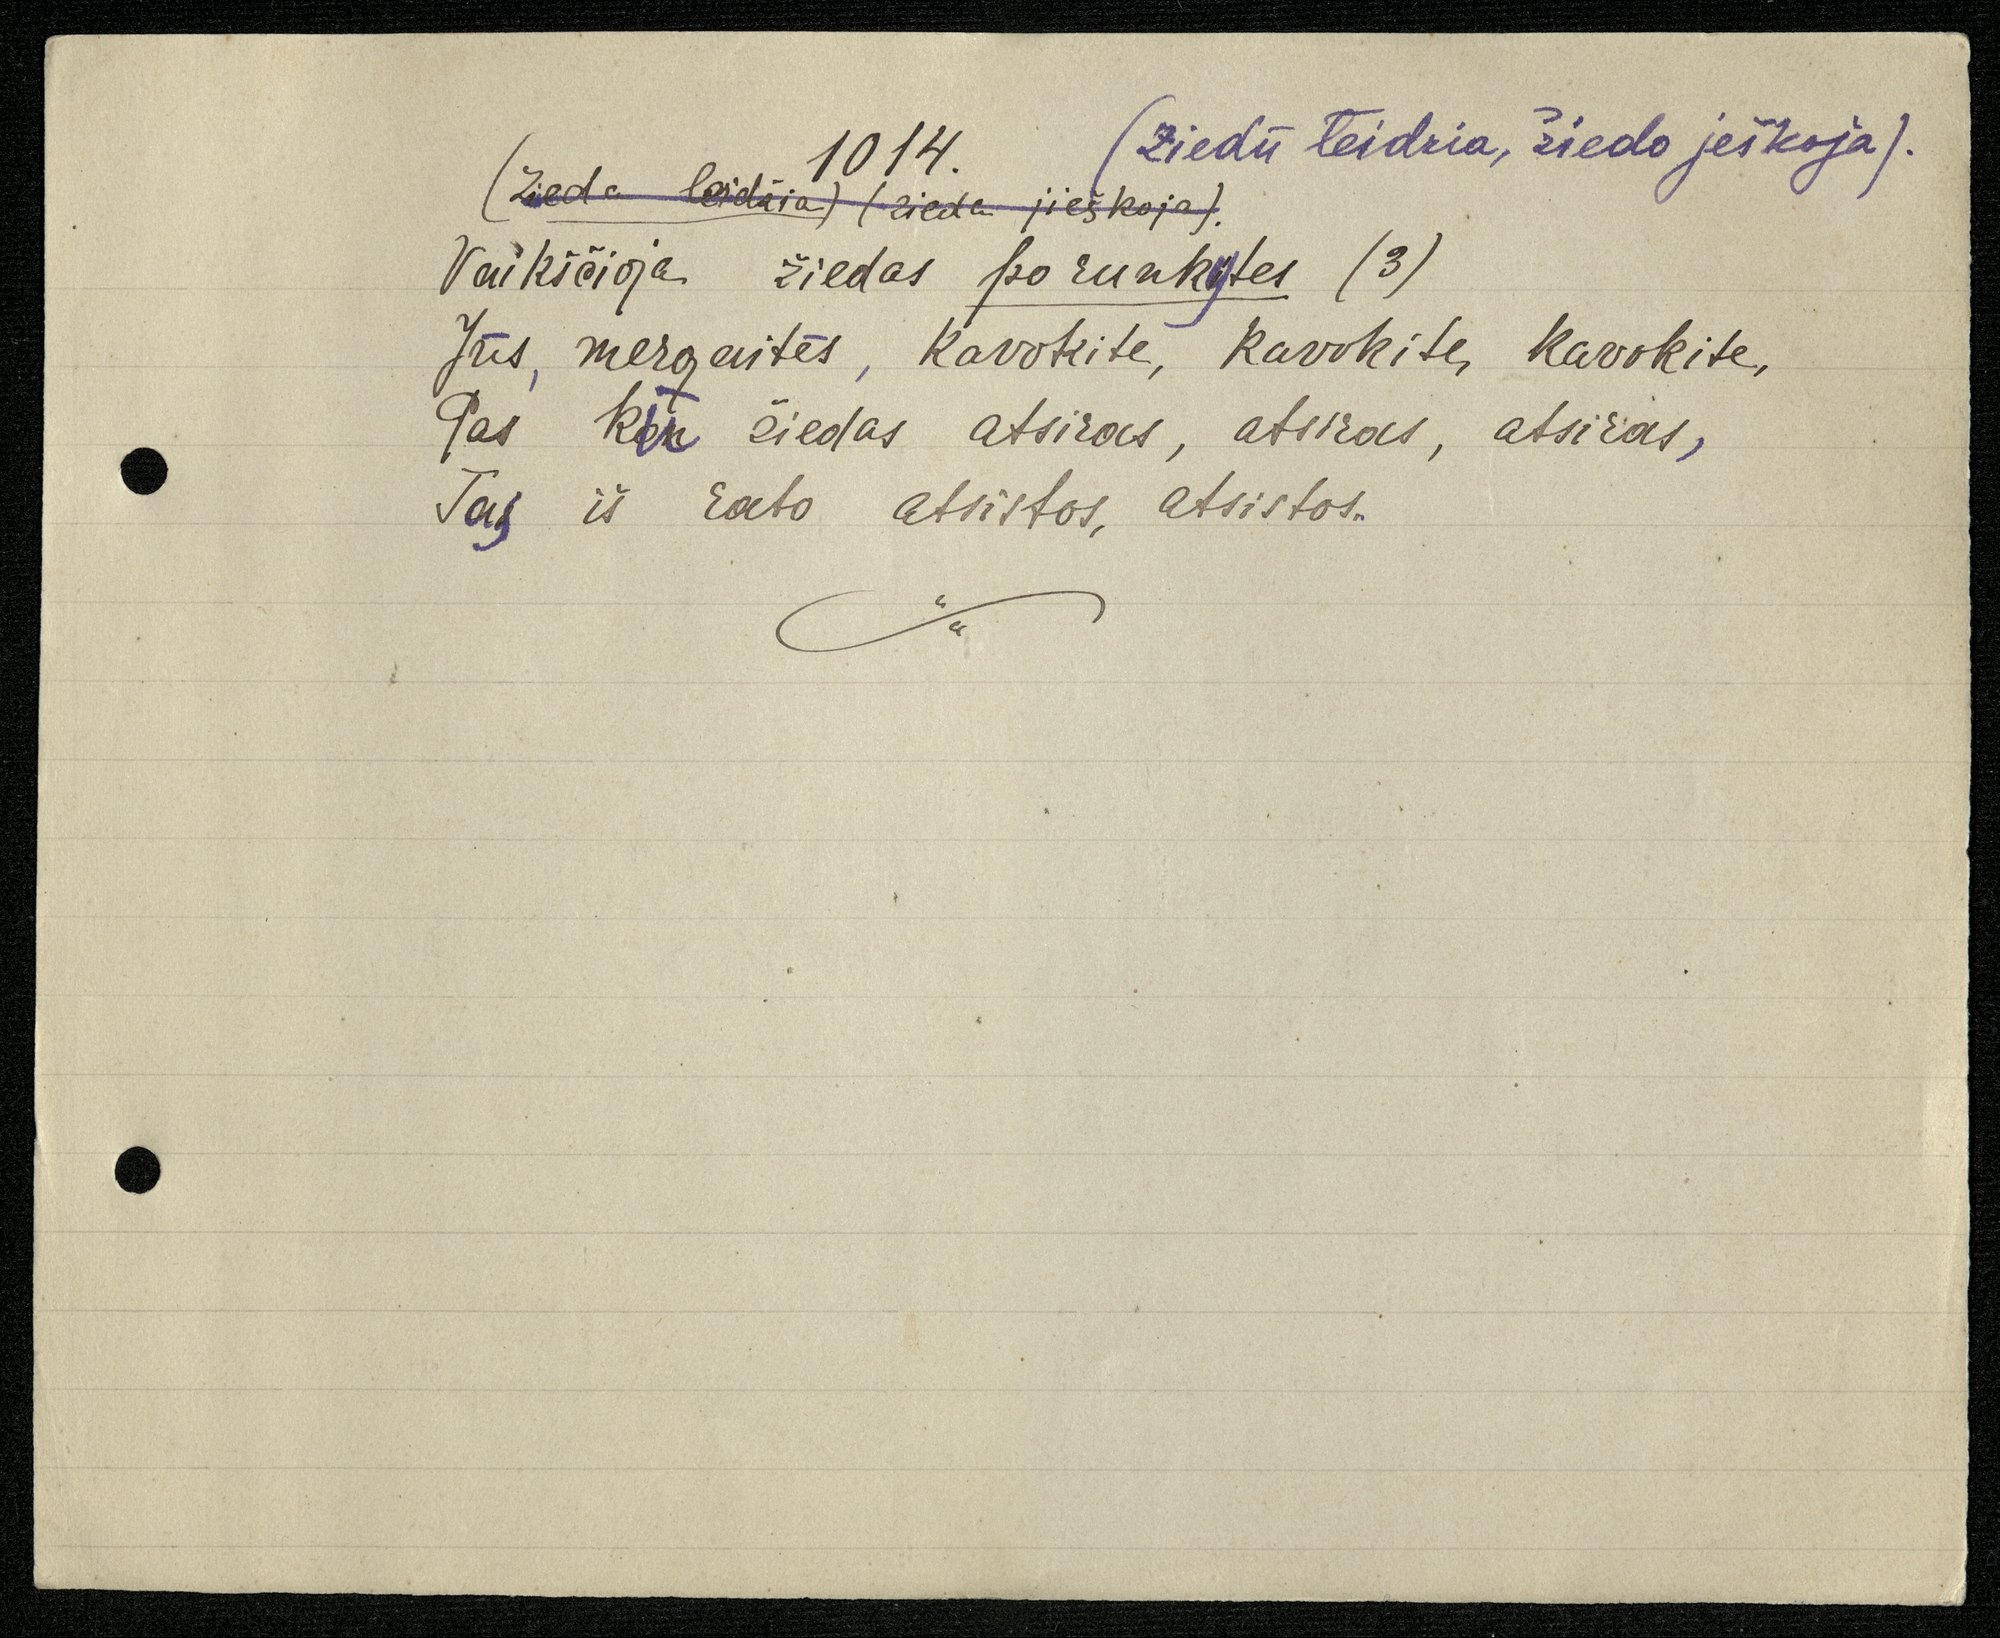 1014. (Ziedū leidzia, žiedo ješkoja).
(Zieda leidžia) (zieda jieškoja).
Vaikščioja žiedas po runkytes (3)
Jūs, mergaitēs, kavokite, kavokite, kavokite,
Pas kū žiedas atsiras, atsiras, atsiras,
Tas iš rato atsistos, atsistos.